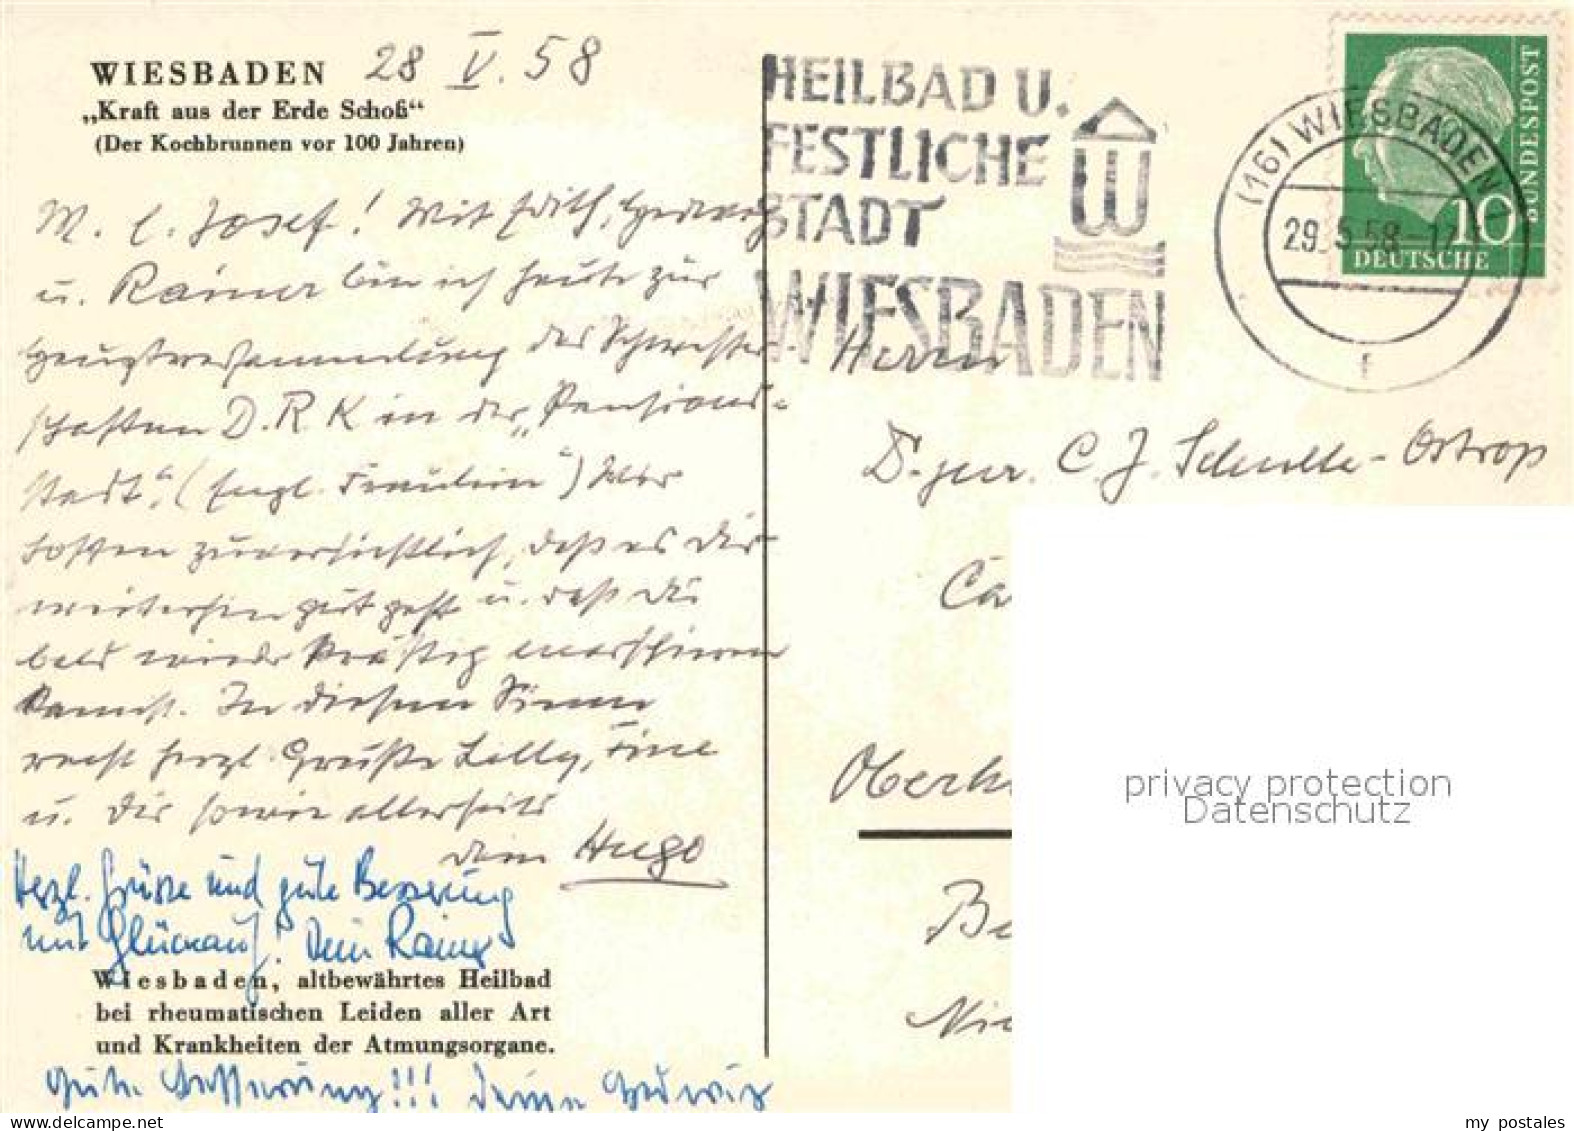 WIESBADEN 28 V. 58
„Kraft aus der Erde Schoß“
(Der Kochbrunnen vor 100 Jahren)
M. l. Josef! Mit Edith, Hedwig
u. Rainer bin ich heute zur
Hauptversammlung der Schwestern-
schaften D.R.K in der „Pensions-
stadt“. (Engl. Fräulein) Wir
hoffen zuversichtlich, daß es Dir
weiterhin gut geht u. daß Du
bald wieder kräftig marschieren
kannst. In diesem Sinne
recht herzl. Grüße Lilly, Tine
u. Dir sowie allerseits
dein Hugo
Herzl. Grüsse und gute Besserung
mit Glückauf! Dein Rainer
Wiesbaden, altbewährtes Heilbad
bei rheumatischen Leiden aller Art
und Krankheiten der Atmungsorgane.
Gute Besserung!!! Deine Hedwig
HEILBAD U.
FESTLICHE
STADT
WIESBADEN
W
(16) WIESBADEN
29.5.58-17
f
10
DEUTSCHE
BUNDESPOST
Herrn
Dr. jur. C. J. Schulte-Ostrop
Ca
Oberh
Be
Nie
privacy protection
Datenschutz
my postales